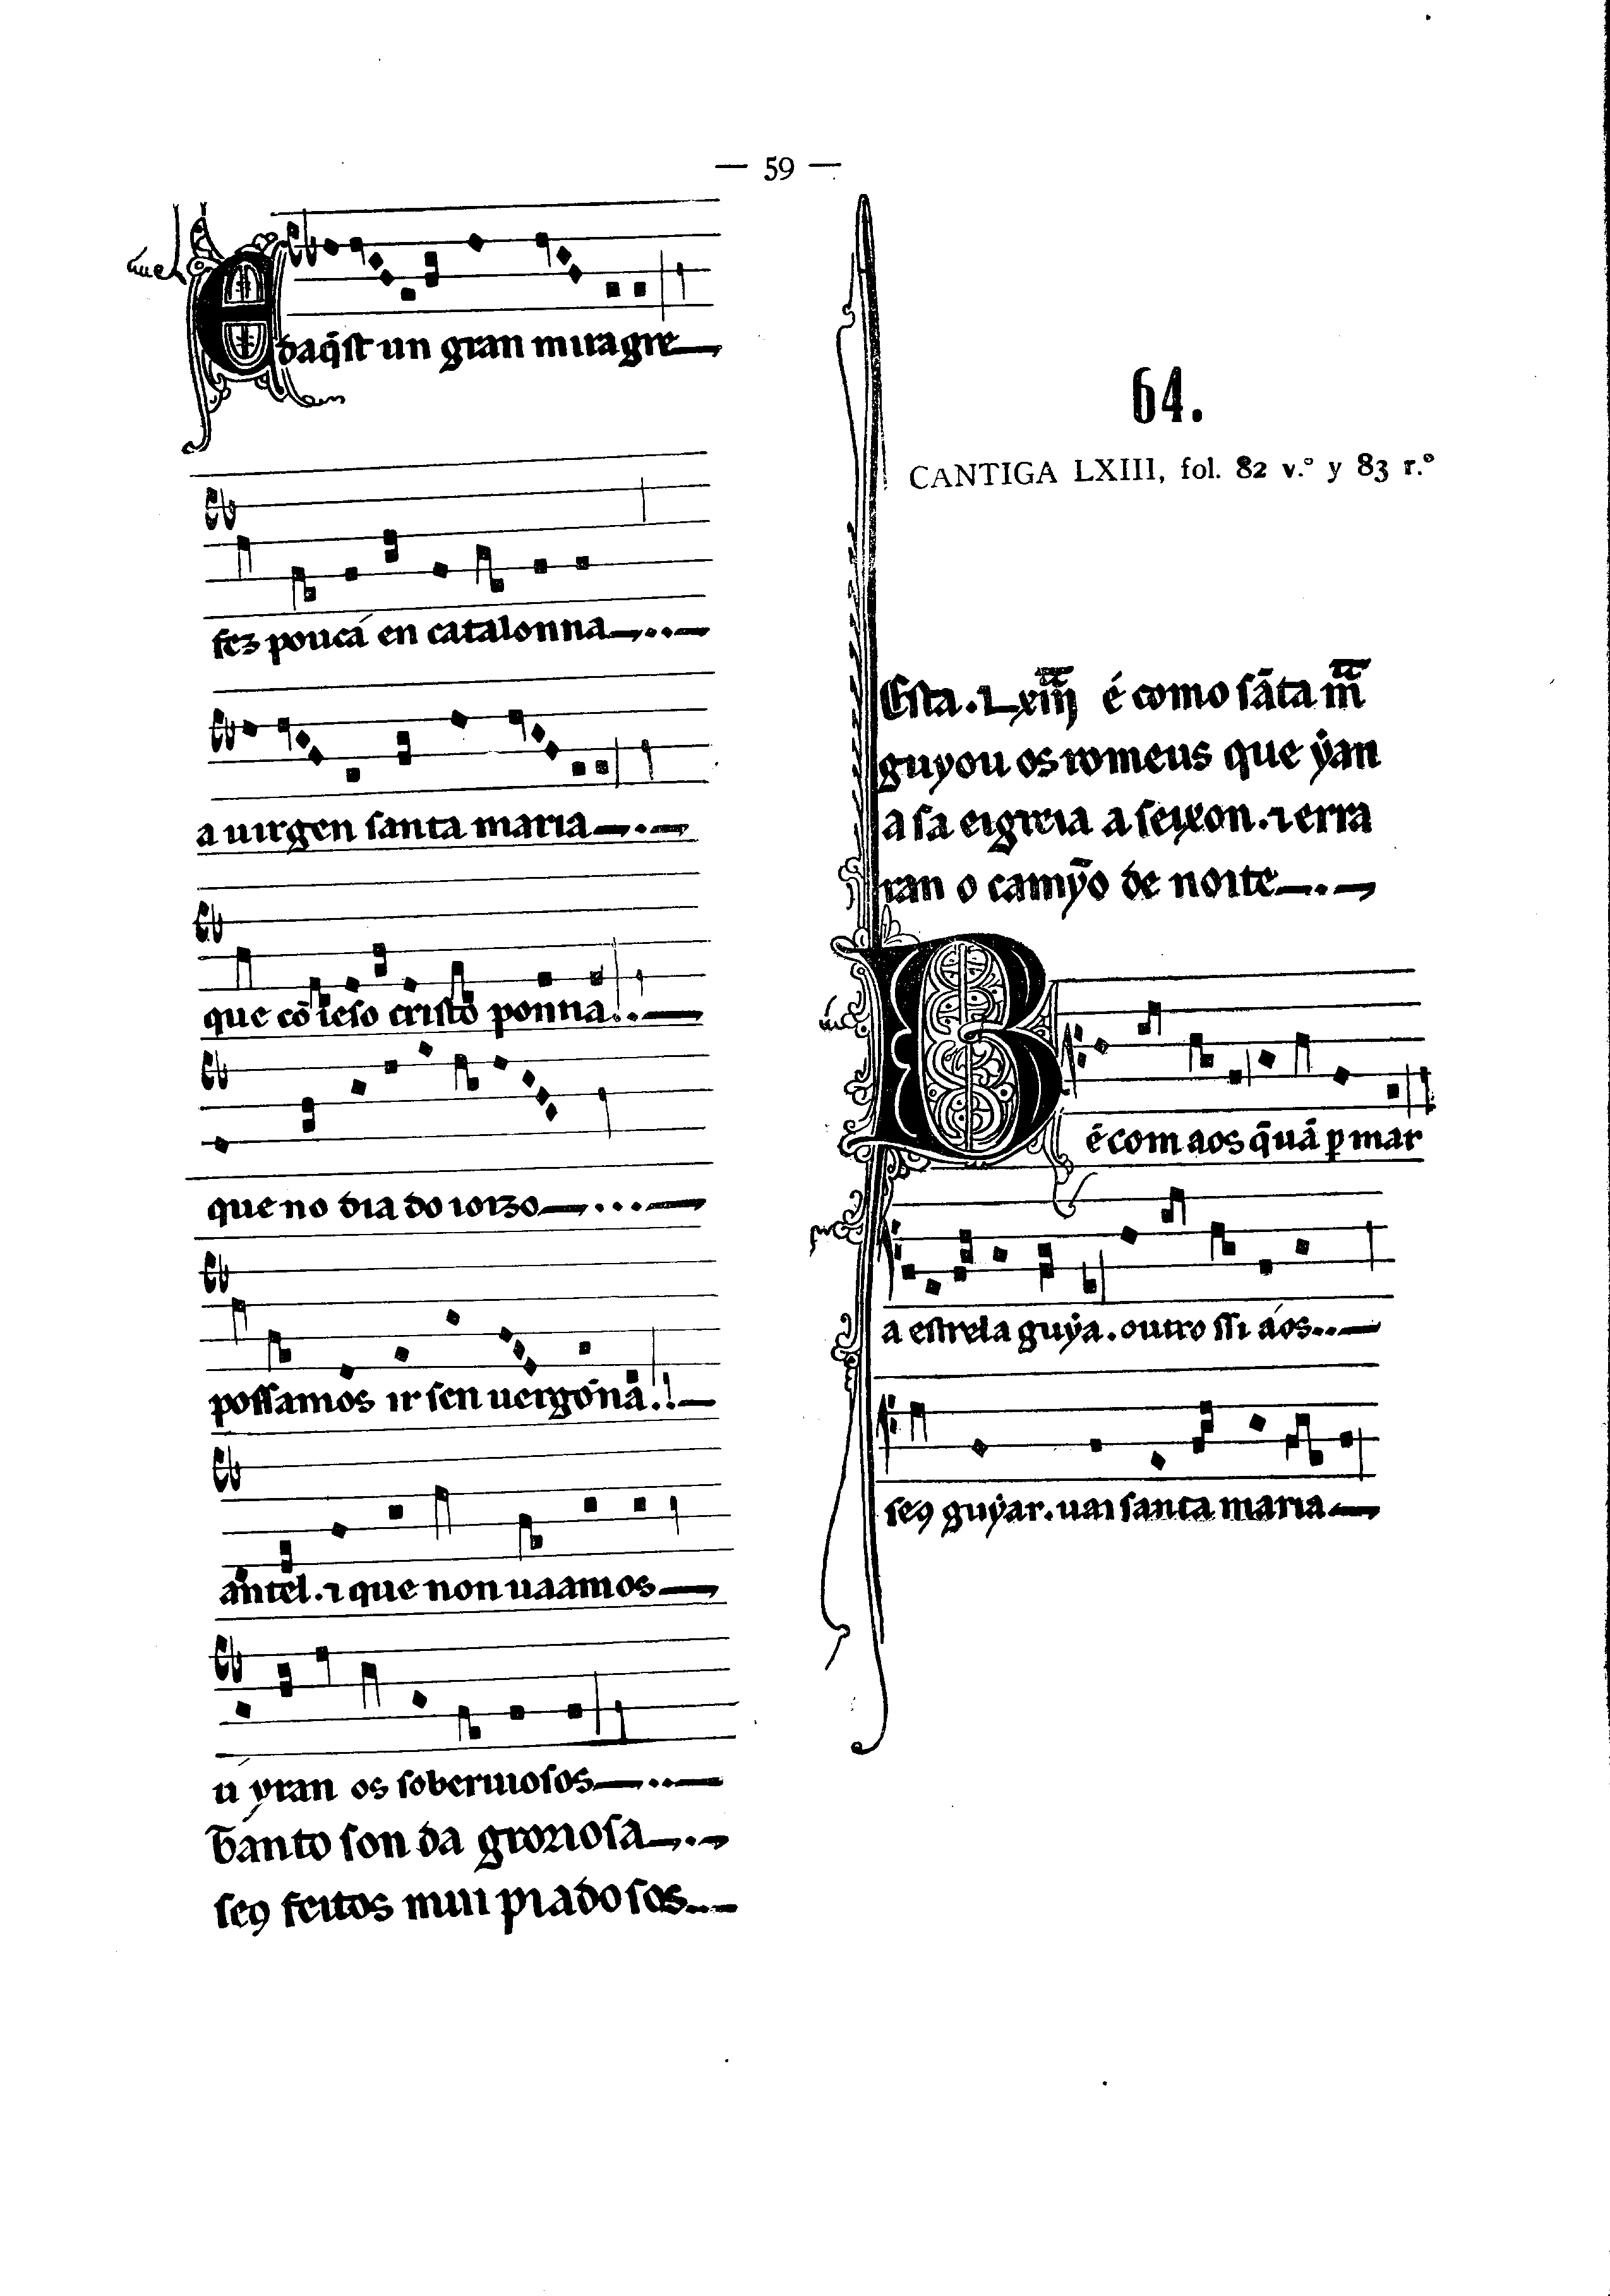 — 59 —
E daq̃st un gran miragre
fez poucá en catalonna
a uirgen santa maria
que cõ ieso cristo ponna
que no dia do ioizo
possamos ir sen uergonna
antel. ⁊ que non uaamos
ú yran os soberuiosos
seꝯ feitos mui piadosos
64.
CANTIGA LXIII, fol. 82 v.º y 83 r.º
Esta .Lxiiij é como sãta m̃
guyou os romeus que ẏan
a sa eigreia a seixon. ⁊ erra
ran o camỹo de noite
B ẽ com aos q̃ uã ꝑ mar
a estrela guẏa. outro ssi aós
seꝯ guẏar. uai santa maria